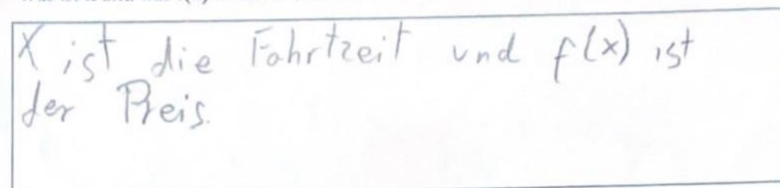 X ist die Fahrtzeit und f(x) ist
der Preis.